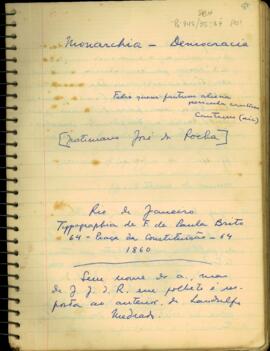 Monarchia – Democracia
Felix quem faciunt aliena
pericula cautum
Cautum (sic)
[Justiniano José da Rocha]
Rio de Janeiro
Typographia de F. de Paula Brito
64 – Praça da Constituição – 64
1860
Sem nome de a., mas
de J. J. d. R. este folheto é res-
posta ao anterior, de Landulfo
Medrado.